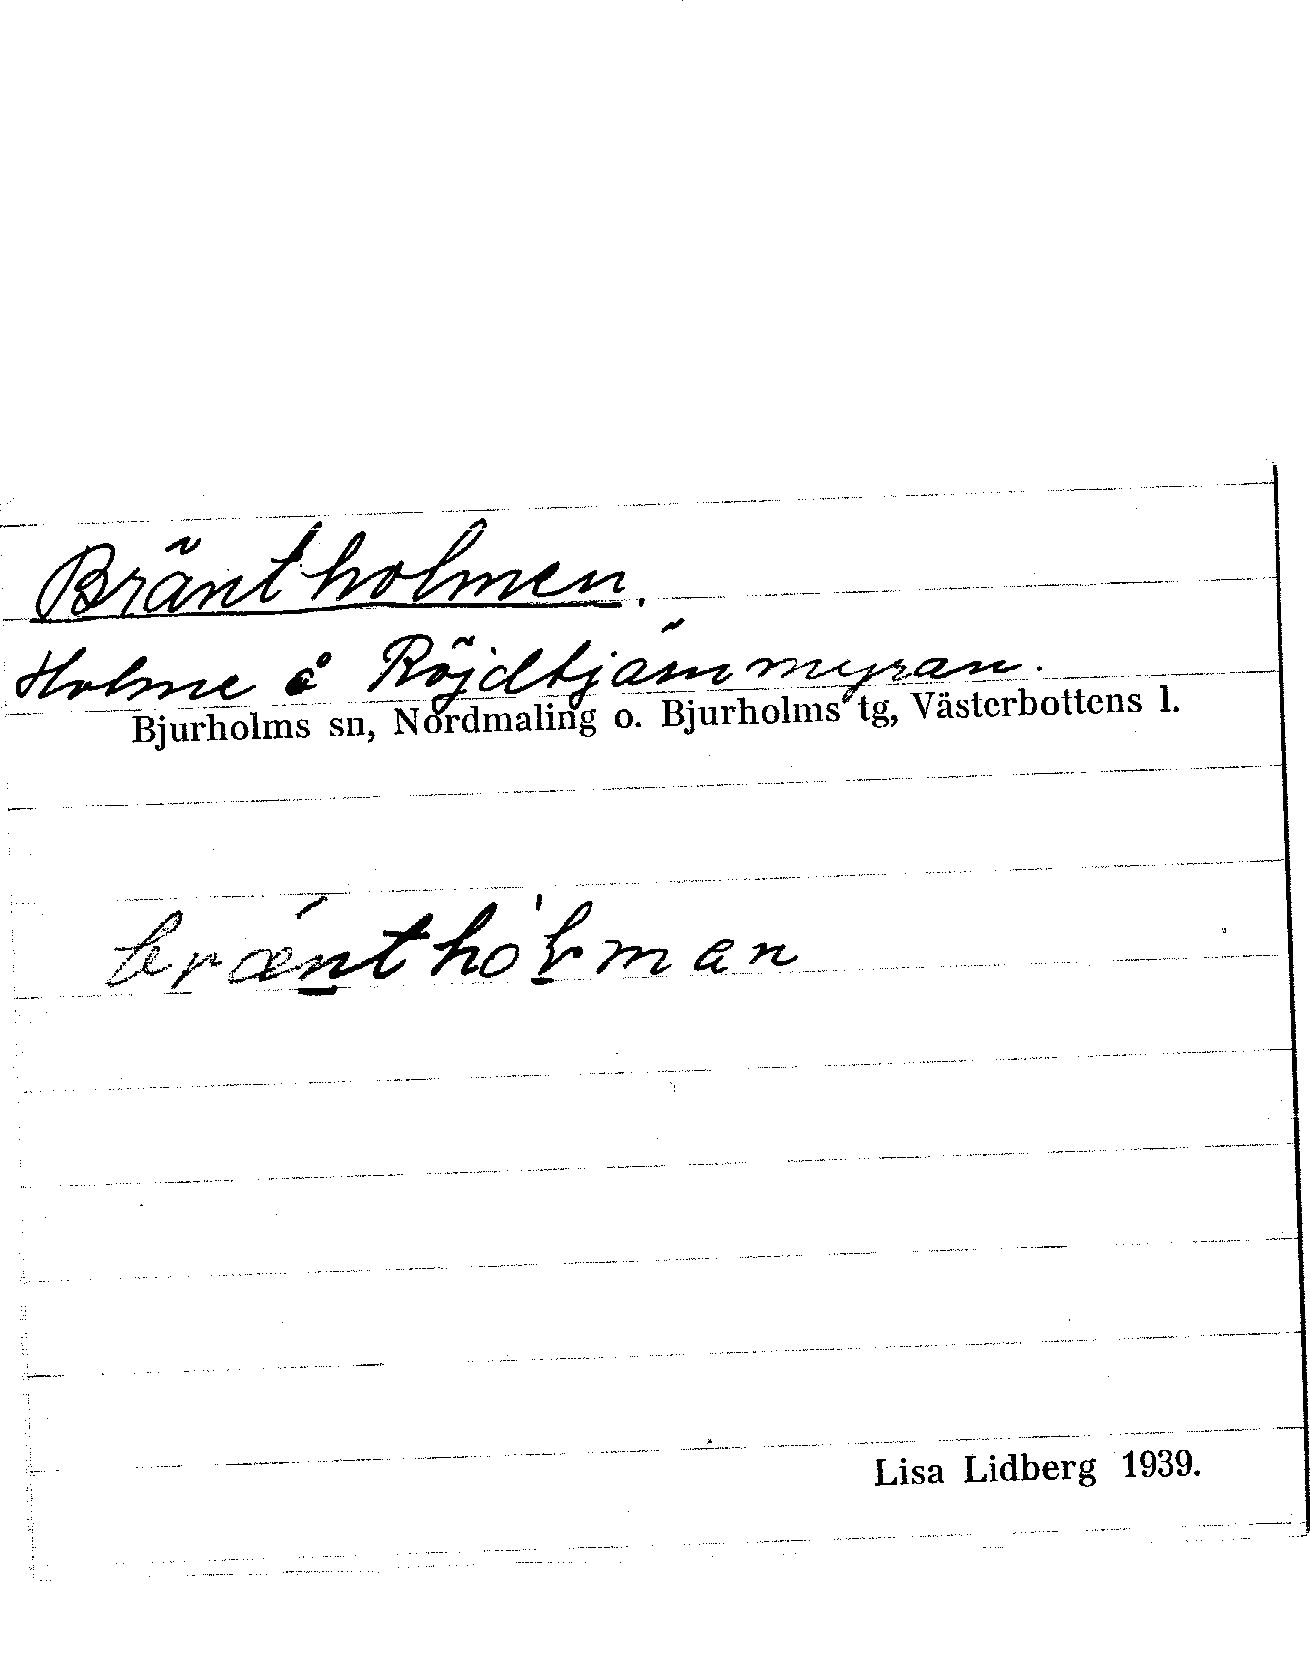 Bräntholmen.
Holme å Röjdtjämmyran.
Bjurholms sn, Nordmaling o. Bjurholms tg, Västerbottens l.
bræ̀ntho̍ɫman
Lisa Lidberg 1939.